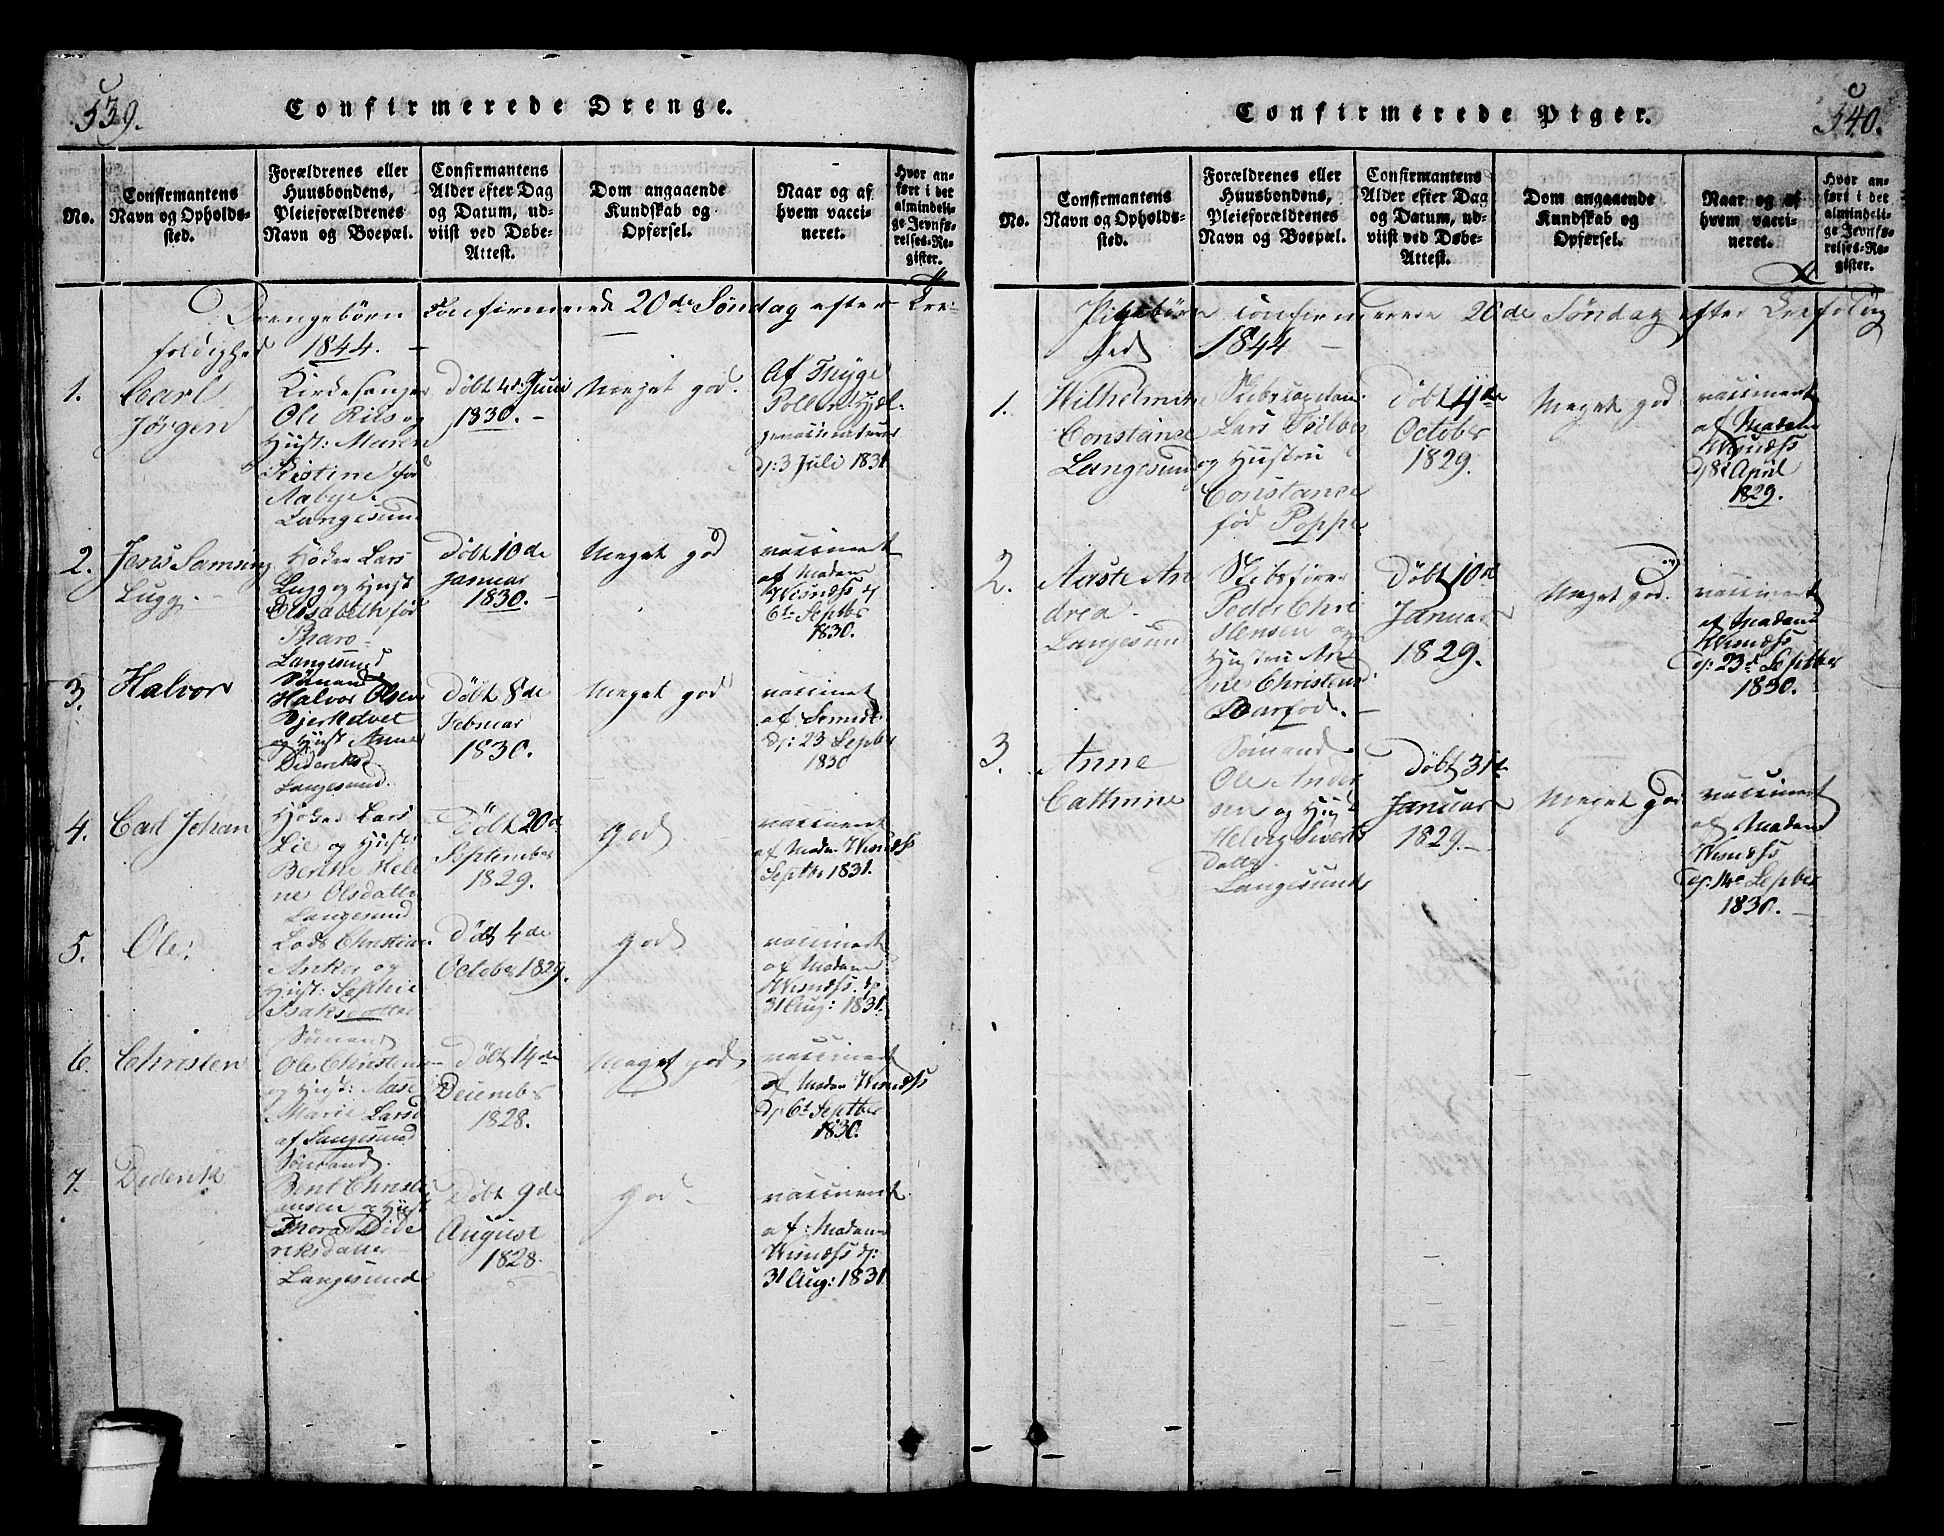 539.
Confirmerede Drenge.
No.
Confirmantens
Navn og Opholds-
sted.
Forældrenes eller
Huusbondens,
Pleieforældrenes
Navn og Boepæl.
Confirmantens
Alder efter Dag
og Datum, ud-
viist ved Døbe-
Attest.
Dom angaaende
Kundskab og
Opførsel.
Naar og af
hvem vacci-
neret.
Hvor an-
ført i det
almindeli-
ge Jevnfø-
relses-Re-
gister.
Drengebörn Confirmerede 20de Søndag efter Tre-
foldighed 1844.
1.
Carl
Jörgen
Kirkesanger
Ole Riis og
Hust: Maren
Kistine fød
Aabye.
Langesund
Döbt 4de Juni
1830.
Meget god.
Af Thyge
d: 3 Juli 1831
2.
Jens Samsing
Lugg.
Höker Lars
Lugg og Hust
Elisabeth fød
Pharo
Langesund
Döbt 10de
Januar
1830.
Meget god
vaccineret
af Madam
Wisnæss d
6te Septbr
1830.
3.
Halvor
Sömand
Halvor Olsen
Bjerketvet
og Hust Anne
Dideriks
Langesund.
Döbt 8de
Februar
1830.
Meget god
vaccineret
af
d: 23 Septbr
1830
4.
Carl Johan
Höker Lars
Lie og Hust
Berthe Hele
ne Olsdatter
Langesund
Döbt 20de
September
1829.
god
vaccineret
af Madam Wisnæss
Septbr 1831.
5.
Ole.
Lods Christian
Anker og
Hust: Sophie
Isaksdatter
Döbt 4de
October 1829.
god
vaccineret
af Madam
Wisnæss. d
31 Aug: 1831.
6.
Christen
Sömand
Ole Christensen
og Hust: Aase
Marie Larsd
af Langesund
Döbt 14de
December
1828.
Meget god
vaccineret
af Madam Wisnæss
d 6te Septber
1830.
7.
Diderik
Sömand
Bent Christi
ansen og Hust
Thora Dide
riksdatter
Langesund
Döbt 9de
August
1828.
god
vaccineret
af: Madam
Wisnæss d:
31 Aug: 1831
540.
Confirmerede Piger.
No.
Confirmantens
Navn og Opholds-
sted.
Forældrenes eller
Huusbondens,
Pleieforældrenes
Navn og Boepæl.
Confirmantens
Alder efter Dag
og Datum, ud-
viist ved Døbe-
Attest.
Dom angaaende
Kundskab og
Opførsel.
Naar og af
hvem vacci-
neret.
Hvor an-
ført i det
almindeli-
ge Jevnfø-
relses-Re-
gister.
Pigebörn Confirmerede 20de Söndag efter Trefoldig
hed 1844
1.
Wilhelmine
Constance
Langesund
Lars
og Hustru
Constance
fød Poppe
Döbt 11de
October
1829.
Meget god
vaccineret
af Madam
Wisnæss
d 8de April
1829.
2.
Aaste An
drea.
Langesund
Skibsförer
Peder Chri
stensen og
Hustru An
ne Christense
Barfod.
Döbt 10de
Januar
1829.
Meget god.
vaccineret
af Madam
Wisnæss
d: 23de Septber
1830.
3.
Anne
Cathrine
Sömand
Ole Ander
sen og Hust
Helvig Siverts
Datter.
Langesund
Döbt 31te
Januar
1829.
Meget god
vaccineret
af Madam
Wisnæss
d: 14de Septber
1830.